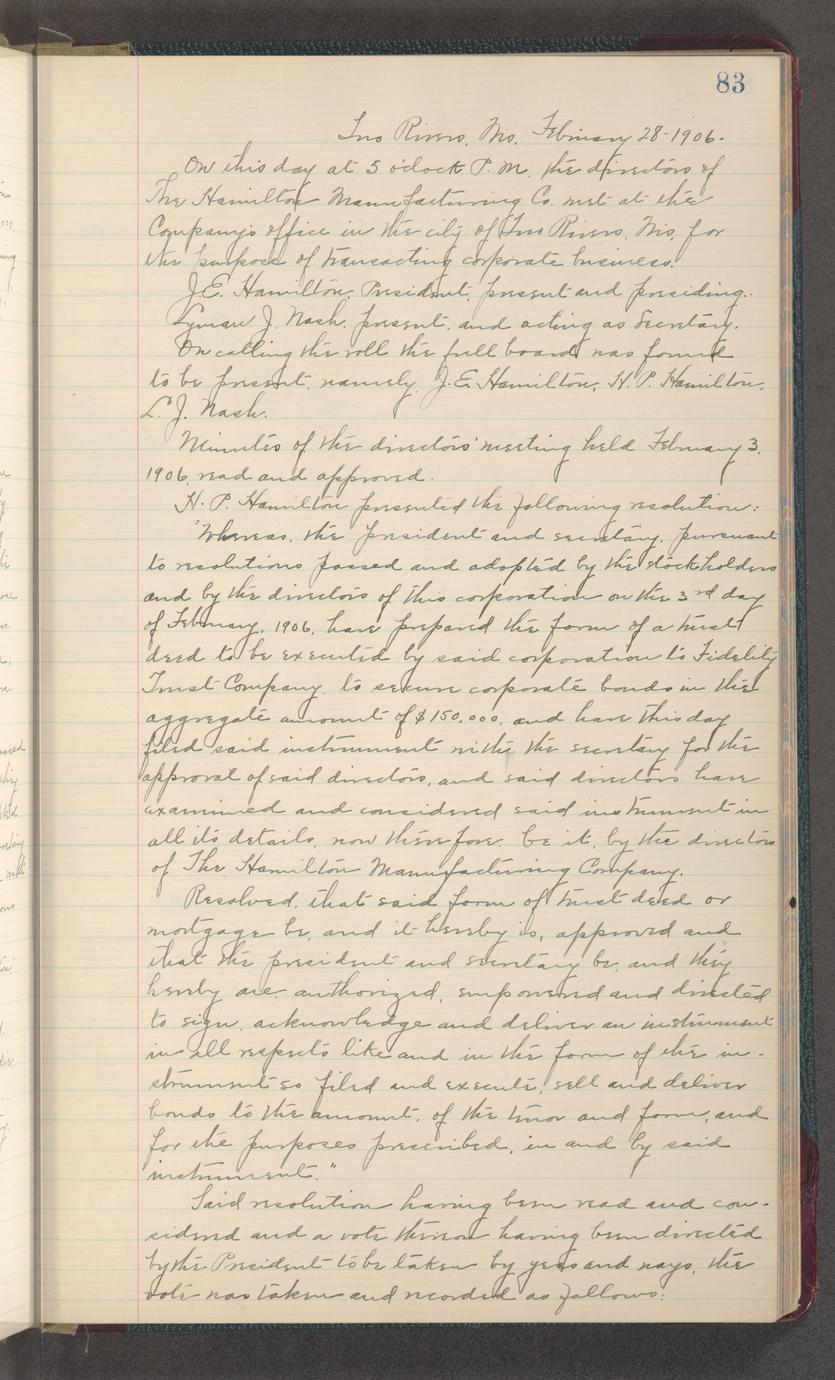 83
Two Rivers, Wis. February 28-1906.
On this day at 5 o'clock P.M. the directors of
The Hamilton Manufacturing Co. met at the
Company's office in the city of Two Rivers, Wis. for
the purpose of transacting corporate business.
J.E. Hamilton, President, present and presiding.
Lyman J. Nash, present, and acting as Secretary.
On calling the roll the full board was found
to be present, namely, J.E. Hamilton, H.P. Hamilton,
L.J. Nash.
Minutes of the directors' meeting held February 3,
1906, read and approved.
H.P. Hamilton presented the following resolution:
"Whereas, the president and secretary, pursuant
to resolutions passed and adopted by the stockholders
and by the directors of this corporation on the 3rd day
of February, 1906, have prepared the form of a trust
deed to be executed by said corporation to Fidelity
Trust Company, to secure corporate bonds in the
aggregate amount of $150,000, and have this day
filed said instrument with the secretary for the
approval of said directors, and said directors have
examined and considered said instrument in
all its details, now therefore be it, by the directors
of The Hamilton Manufacturing Company.
Resolved, that said form of trust deed or
mortgage be, and it hereby is, approved and
that the president and secretary be, and they
hereby are authorized, empowered and directed
to sign, acknowledge and deliver an instrument
in all respects like and in the form of the in-
strument so filed and execute, sell and deliver
bonds to the amount, of the tenor and form, and
for the purposes prescribed, in and by said
instrument."
Said resolution having been read and con-
sidered and a vote thereon having been directed
by the President to be taken by yeas and nays, the
vote was taken and recorded as follows: